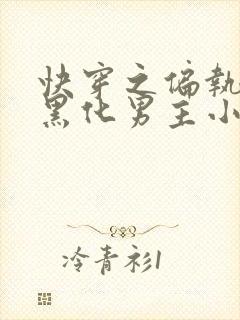 快穿之偏執
黑化男主小
冷青衫1